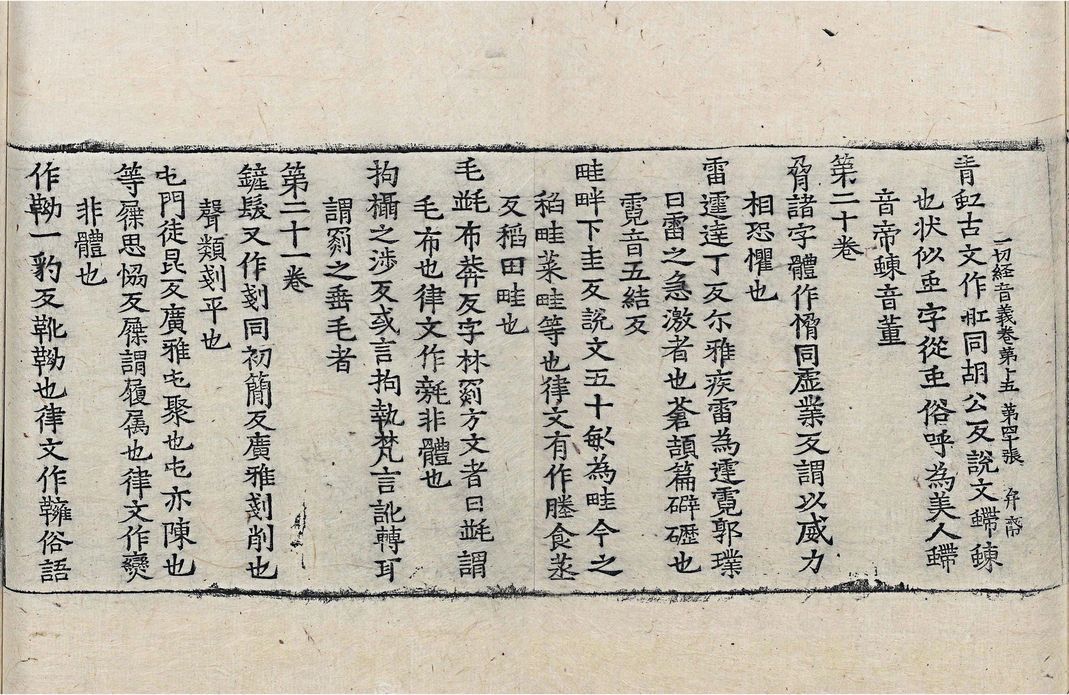 青虹古文作䖝同胡公反說文螮蝀
一切経音義卷第十五 第四十張 弁
也状似虫字從虫俗呼為美人螮
音帝蝀音董
第二十卷
脅諸字體作愶同虛業反謂以威力
相恐懼也
雷霆達丁反尒雅疾雷為霆霓郭璞
曰雷之急激者也蒼頡篇礔礰也
霓音五結反
畦畔下圭反說文五十畝為畦今之
稻畦菜畦等也律文有作塍食蒸
反稻田畦也
毛㲲布莽反字林罽方文者曰㲲謂
毛布也律文作㲲非體也
拘攝之涉反或言拘執梵言訛轉耳
謂罽之垂毛者
第二十一卷
鏟髮又作剗同初簡反廣雅剗削也
聲類剗平也
屯門徒昆反廣雅屯聚也屯亦陳也
等屧思恊反屧謂履屬也律文作㸉
非體也
作靿一豹反靴靿也律文作鞰俗語